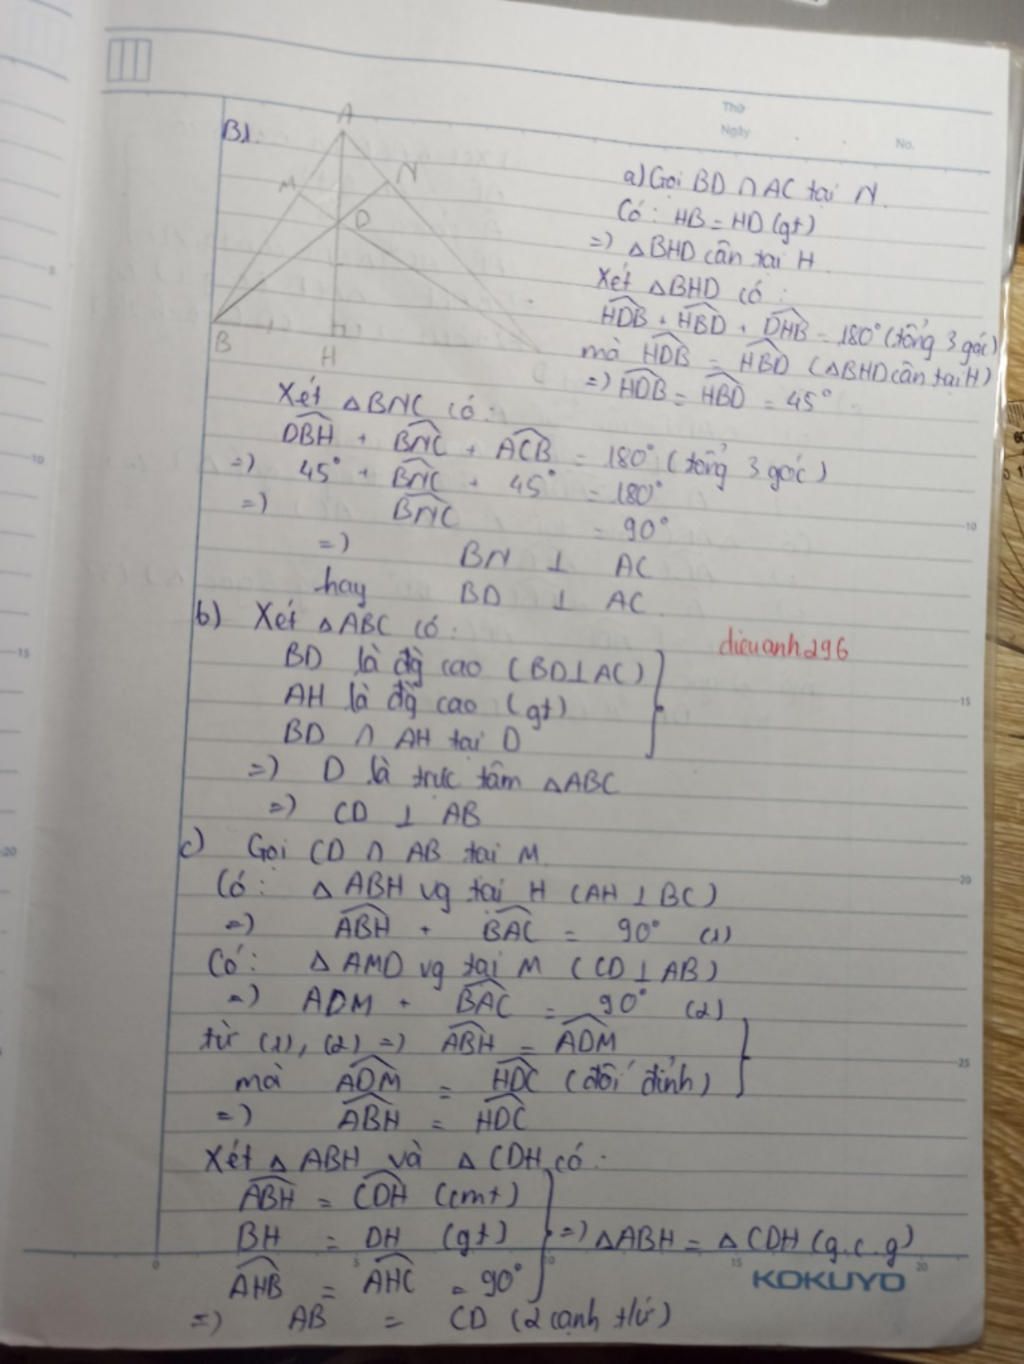 Thứ
Ngày
No.
B1.
A
M
N
D
B
H
a) Gọi BD ∩ AC tại N.
Có: HB = HD (gt)
=) △BHD cân tại H.
Xét △BHD có:
HDB + HBD + DHB = 180° (tổng 3 góc)
mà HDB = HBD (△BHD cân tại H)
=) HDB = HBD = 45°
Xét △BNC có:
DBH + BNC + ACB = 180° (tổng 3 góc)
=) 45° + BNC + 45° = 180°
=) BNC = 90°
=) BN ⊥ AC
hay BD ⊥ AC.
b) Xét △ABC có:
BD là đg̀ cao (BD⊥AC)
AH là đg̀ cao (gt)
BD ∩ AH tại D
dieuanh296
=) D là trực tâm △ABC
=) CD ⊥ AB
c) Gọi CD ∩ AB tại M.
Có: △ ABH vg tại H (AH ⊥ BC)
=) ABH + BAC = 90° (1)
Có: △ AMD vg tại M (CD⊥AB)
=) ADM + BAC = 90° (2)
từ (1), (2) =) ABH = ADM
mà ADM = HDC (đối đỉnh)
=) ABH = HDC
Xét △ ABH và △ CDH có:
ABH = CDH (cmt)
BH = DH (gt)
=) △ABH = △CDH (g.c.g)
AHB = AHC = 90°
KOKUYO
=) AB = CD (2 cạnh t/ứ)
5
10
15
20
10
15
20
25
0
5
10
15
20